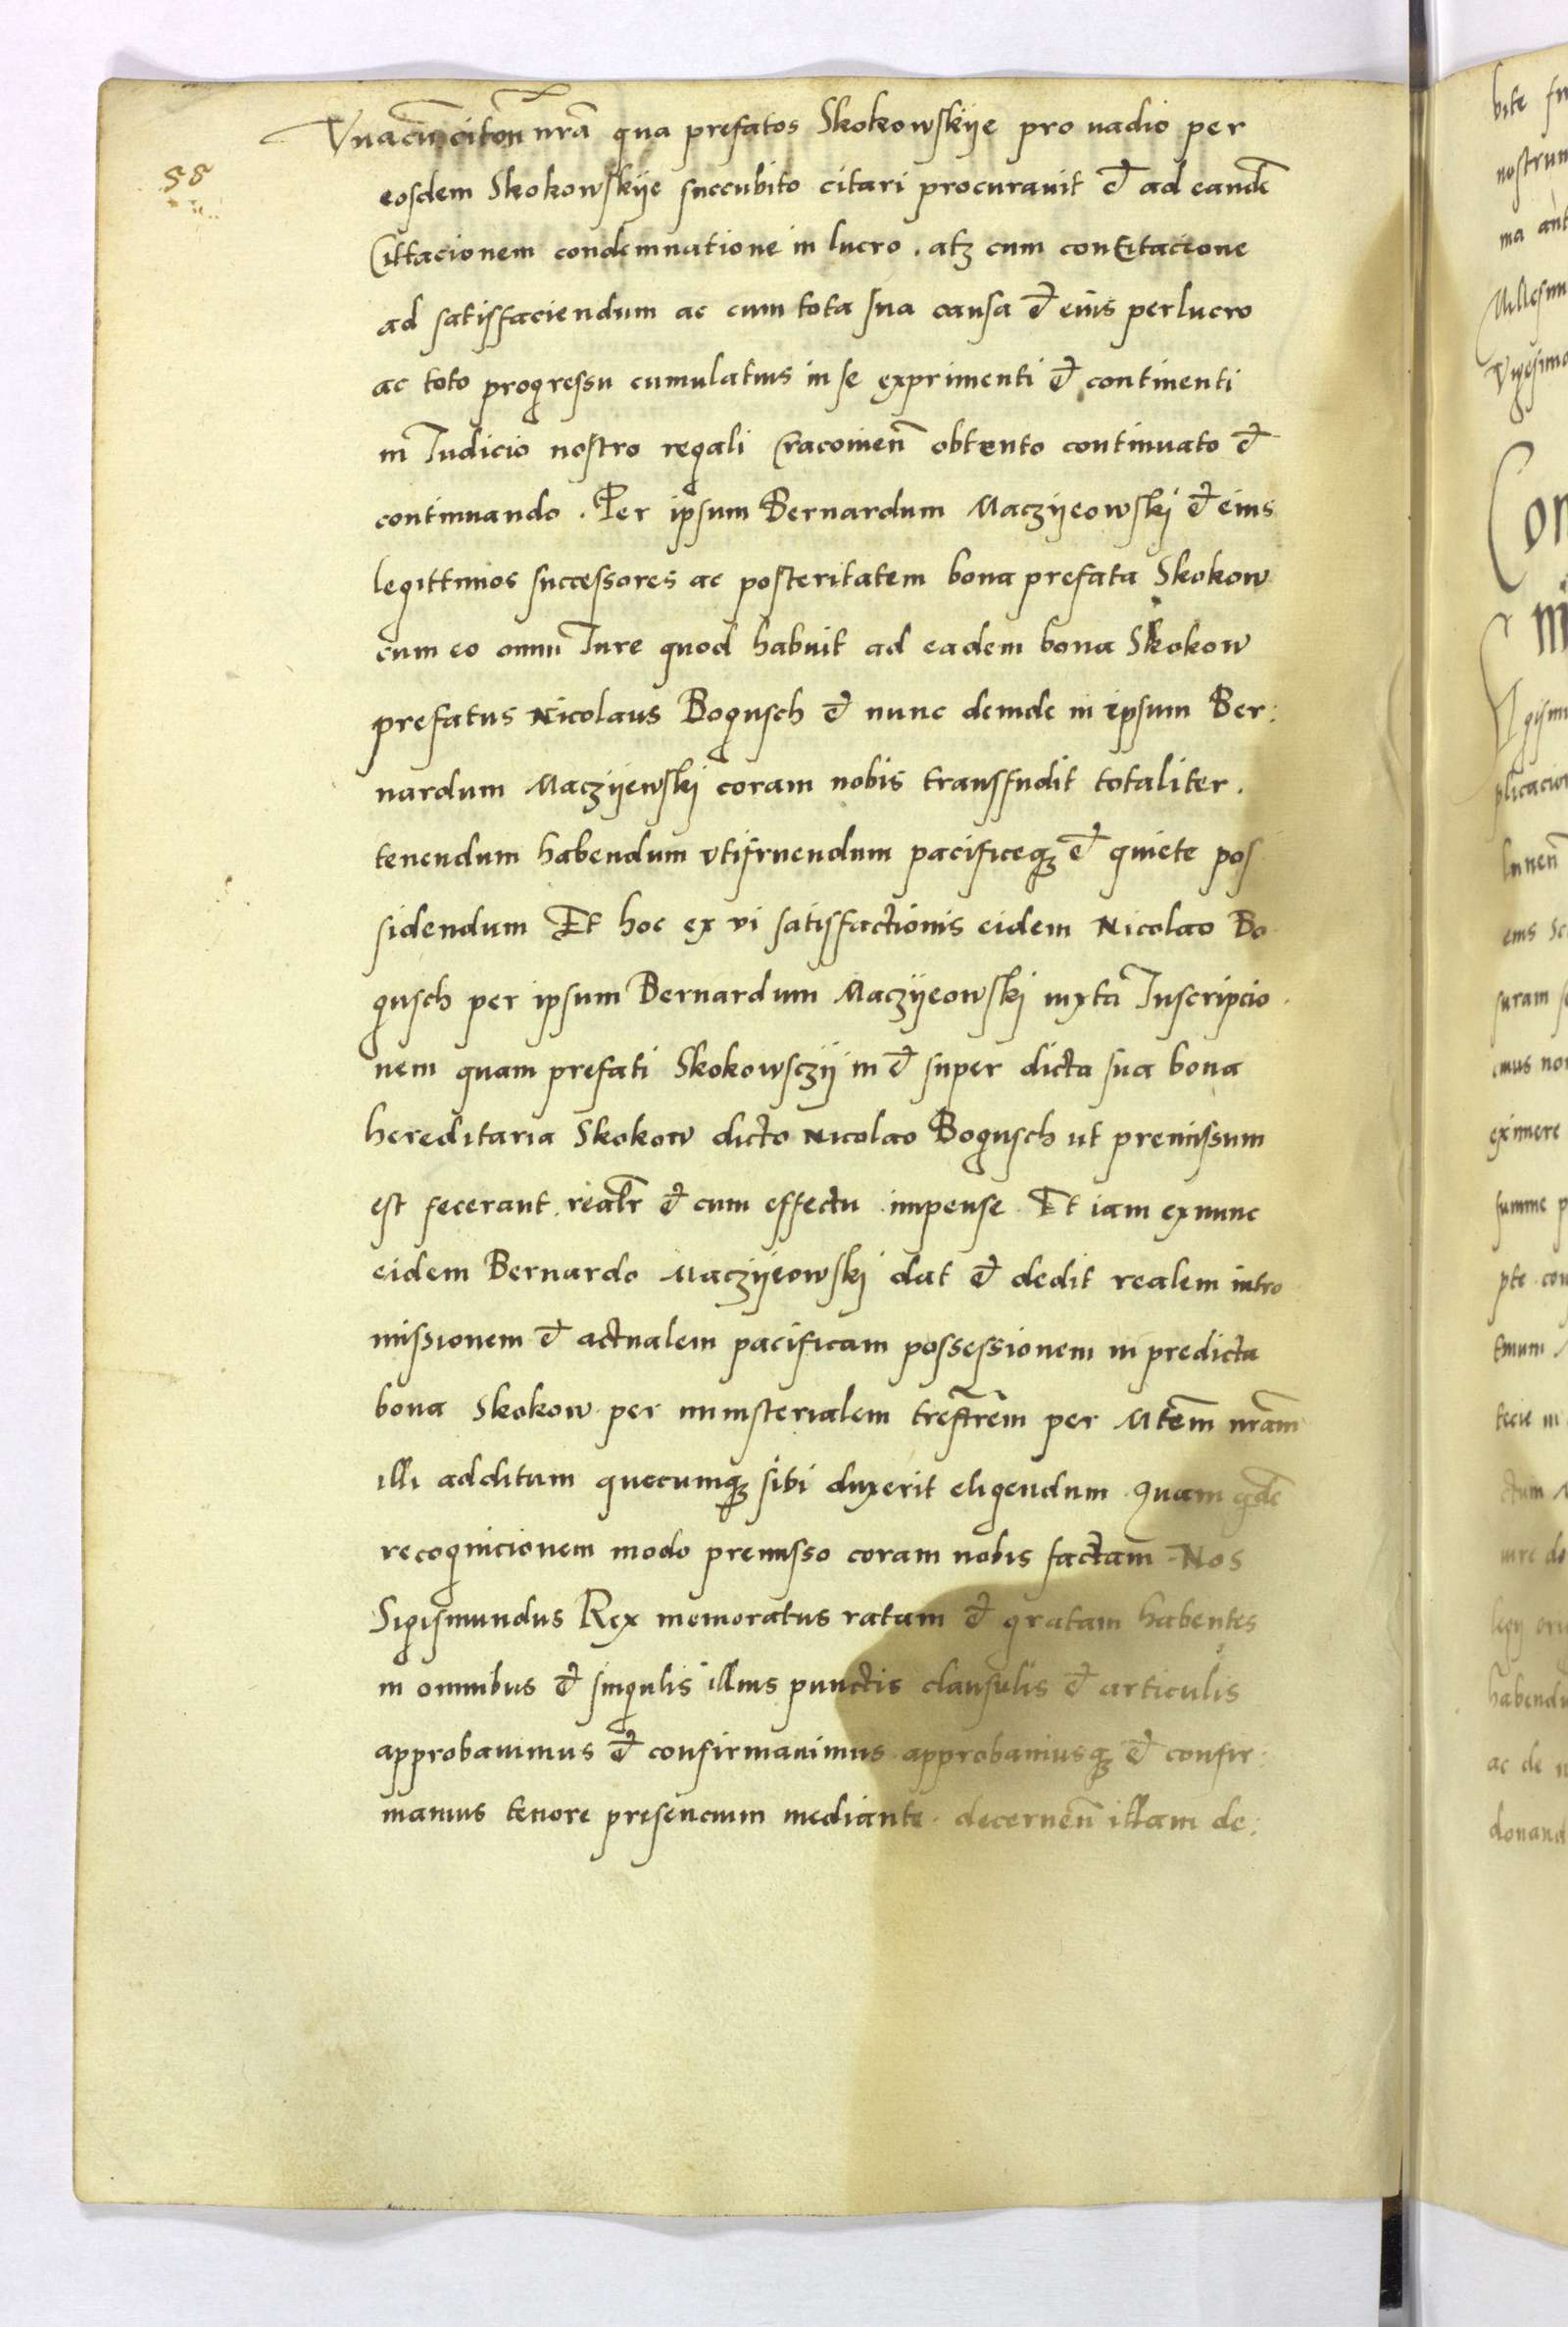 58
Vnacum citoñ nrã qua prefatos Skokowskÿe pro uadio per
eosdem Skokowskÿe succubito citari procurauit et ad eandẽ
Cittacionem condemnatione in lucro . atq cum conCitacione
ad satisfaciendum ac cum tota sua causa et eius perlucro
ac toto progressu cumulatius in se exprimenti et continenti
in Iudicio nostro regali Cracouieñ obtento continuato et
continuando . Per ipsum Bernardum Maczÿeowskj et eius
legittimos successores ac posteritatem bona prefata Skokow
cum eo omni Iure quod habuit ad eadem bona Skokow
prefatus Nicolaus Bogusch et nunc deinde in ipsum Ber:
nardum Maczÿewskj coram nobis transfudit totaliter .
tenendum habendum vtifruendum pacificeq et quiete pos
sidendum Et hoc ex vi satisfactionis eidem Nicolao Bo
gusch per ipsum Bernardum Maczÿeowskj iuxta Inscripcio
nem quam prefati Skokowsczÿ in et super dicta sua bona
hereditaria Skokow dicto Nicolao Bogusch ut premissum
est fecerant . realr̃ et cum effectu impense . Et iam exnunc
eidem Bernardo Maczÿeowskj dat et dedit realem intro
missionem et actualem pacificam possessionem in predicta
bona Skokow per ministerialem trẽstrem per Mtẽm nrãm
illi additum quecumq sibi duxerit eligendum . Quam qdẽ
recognicionem modo premisso coram nobis factam . Nos
Sigismundus Rex memoratus ratam et gratam habentes
in omnibus et singulis illius punctis clausulis et articulis
approbauimus et confirmauimus approbamusq et confir:
mamus tenore presencium mediante . decerneñ illam de: